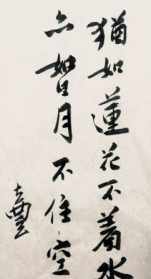 猶如蓮花不著水
亦如日月不住空